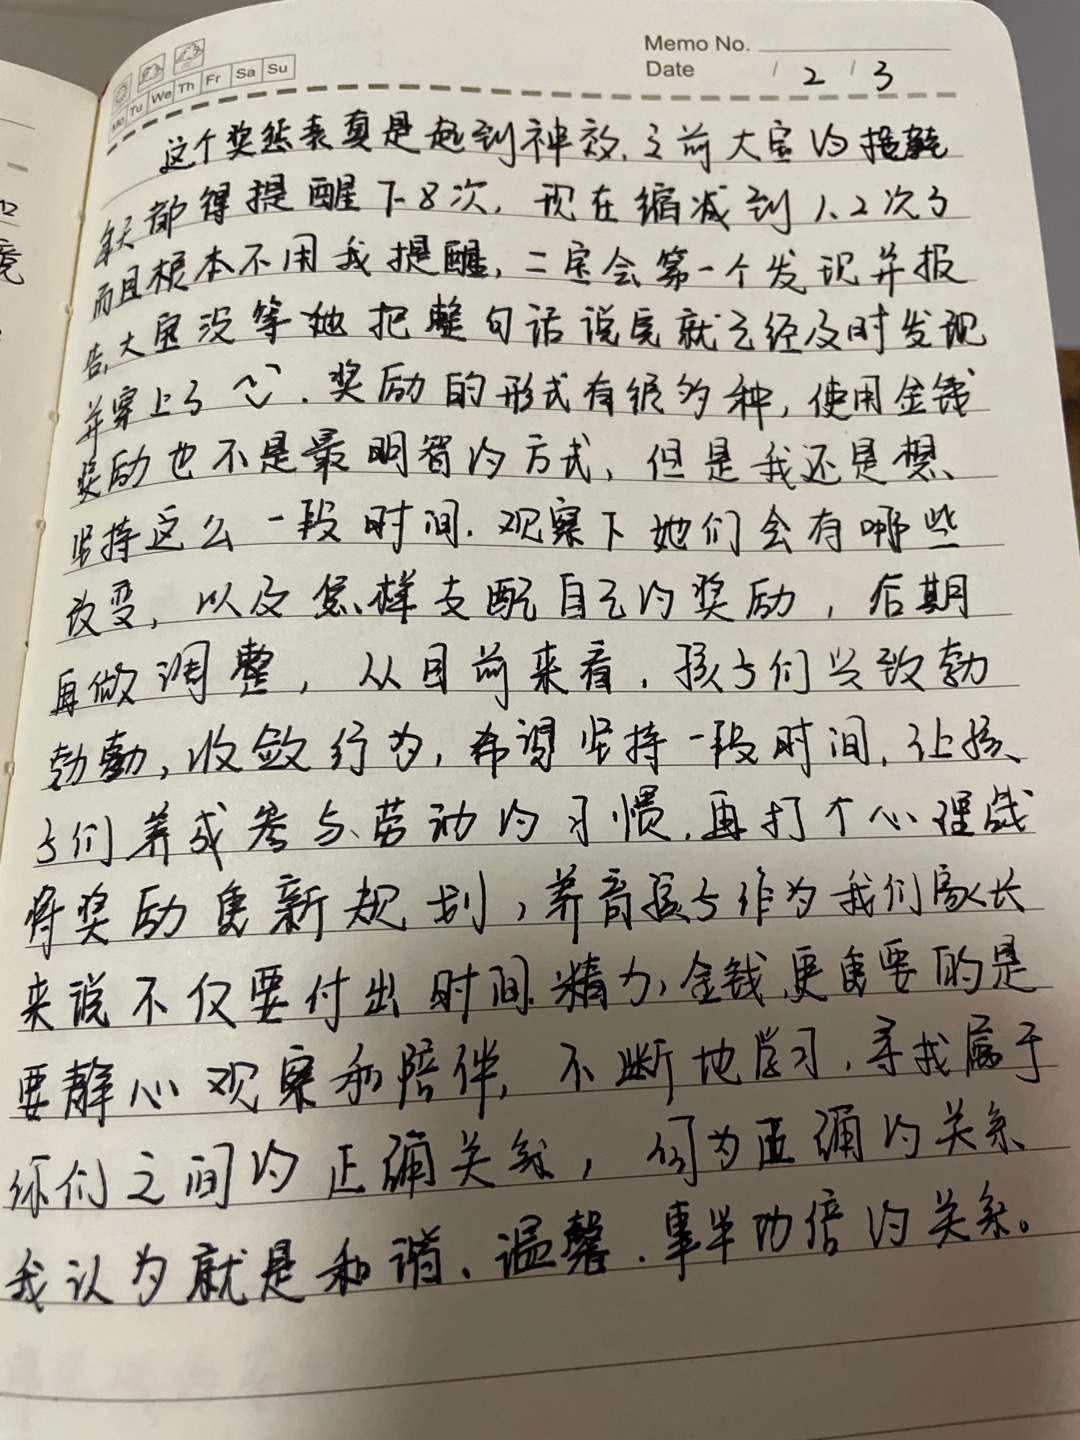 Memo No.
Date / 2 / 3
Mo Tu We Th Fr Sa Su
这个奖惩表真是起到神效,之前大宝的拖鞋
每天都得提醒下8次,现在缩减到1、2次了
而且根本不用我提醒,二宝会第一个发现并报
告,大宝没等她把整句话说完就已经及时发现
并穿上了. 奖励的形式有很多种,使用金钱
奖励也不是最明智的方式,但是我还是想
坚持这么一段时间.观察下她们会有哪些
改变,以及怎样支配自己的奖励,后期
再做调整,从目前来看,孩子们兴致勃
勃勃,收敛行为,希望坚持一段时间,让孩
子们养成参与劳动的习惯,再打个心理战
将奖励重新规划,养育孩子作为我们家长
来说不仅要付出时间.精力,金钱,更重要的是
要静心观察和陪伴,不断地学习,寻找属于
你们之间的正确关系,何为正确的关系
我认为就是和谐、温馨.事半功倍的关系。